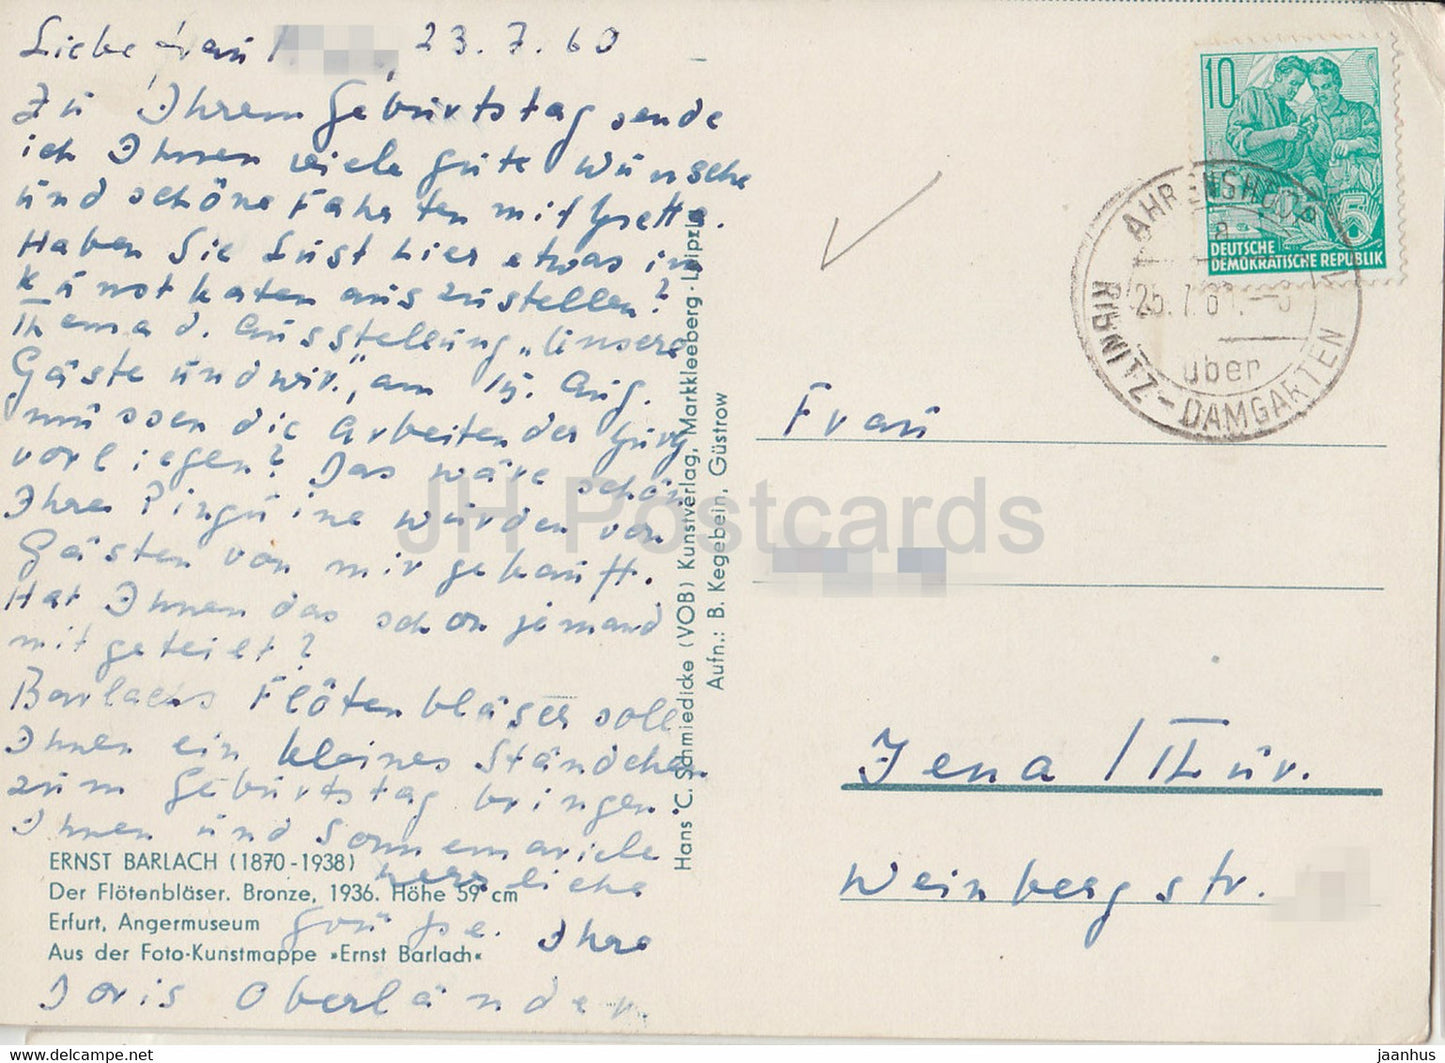 Liebe Frau
23.7.60
Zu Ihrem Geburtstag sende
ich Ihnen viele gute Wünsche
und schöne Fahrten mit
Haben Sie Lust hier etwas im
Kunstkaten auszustellen?
Thema d. Ausstellung „Unsere
Gäste und wir", am 15. Aug.
müssen die Arbeiten der Jury
vorliegen? Das wäre schön
Ihre Pinguine wurden von
Gästen von mir gekauft.
Hat Ihnen das schon jemand
mitgeteilt?
Barlachs Flötenbläser soll
Ihnen ein kleines Ständchen
zum Geburtstag bringen.
Ihnen und Sonnemariele
herzliche
Grüße. Ihre
Doris Oberländer
ERNST BARLACH (1870-1938)
Der Flötenbläser. Bronze, 1936. Höhe 59 cm
Erfurt, Angermuseum
Aus der Foto-Kunstmappe »Ernst Barlach«
Hans C. Schmiedicke (VOB) Kunstverlag, Markkleeberg · Leipzig
Aufn.: B. Kegebein, Güstrow
10
5
DEUTSCHE
DEMOKRATISCHE REPUBLIK
AHRENSHOOP
a
25.7.60
über
RIBNITZ-DAMGARTEN
Frau
Jena / Thür.
Weinbergstr.
JH Postcards
jaanhus — https://www.ebay.com/usr/jaanhus